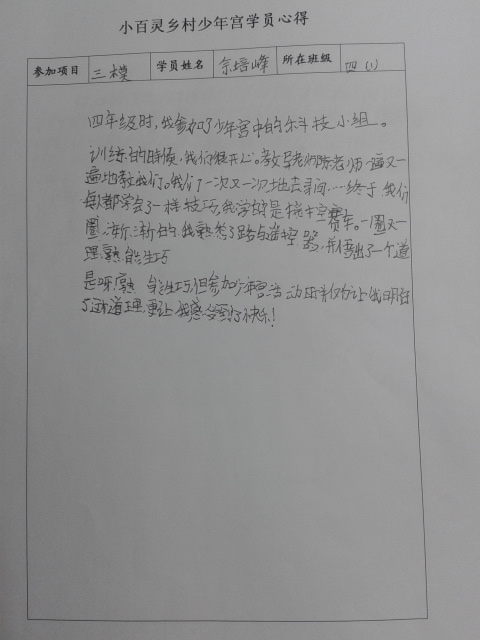 小百灵乡村少年宫学员心得
参加项目 三模 学员姓名 余培峰 所在班级 四(1)
四年级时,我参加了少年宫中的科技小组。
训练的时候,我们很开心。教导老师陈老师一遍又一
遍地教我们。我们一次又一次地去 …终于,我们
每都学会了一样技巧,我学的是 赛车。一圈又一
圈,渐渐的,我熟悉了路与遥控器,并悟出了一个道
理,熟能生巧
是呀!熟能生巧,但参加少年宫活动 让我明白
了 道理,更让我感受到了快乐!